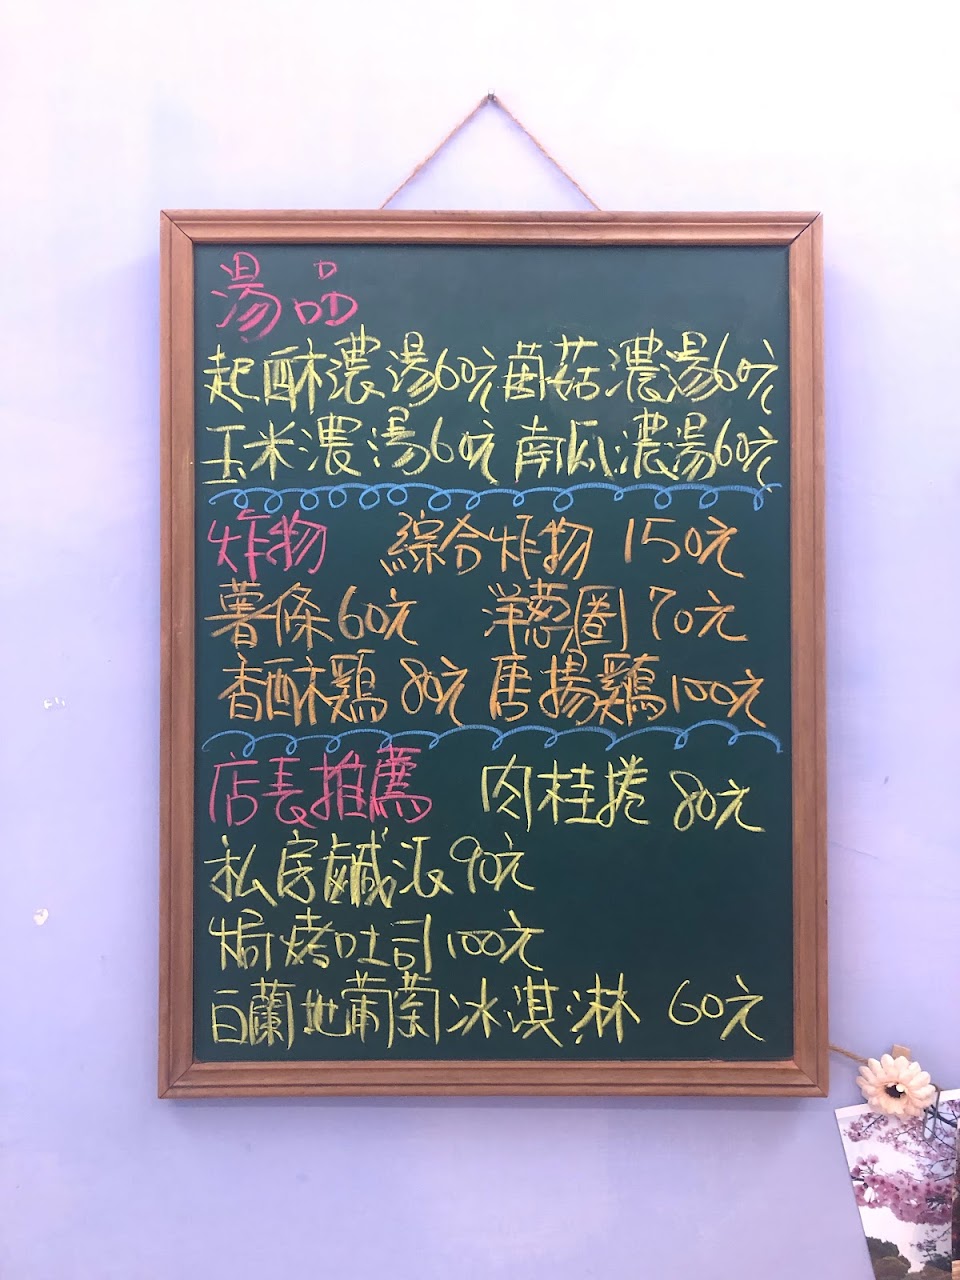 湯品
起酥濃湯60元 菌菇濃湯60元
玉米濃湯60元 南瓜濃湯60元
炸物 綜合炸物 150元
薯條60元 洋蔥圈 70元
香酥鷄 80元 唐揚鷄100元
店長推薦 肉桂捲 80元
私房鹹派90元
焗烤吐司100元
白蘭地葡萄冰淇淋 60元